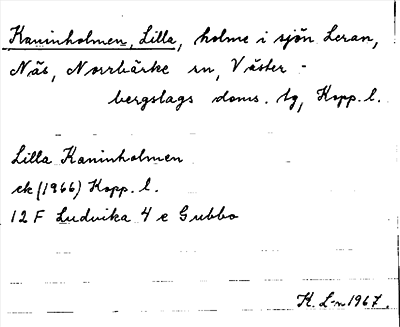 Kaninholmen, Lilla, holme i sjön Leran,
Näs, Norrbärke sn, Väster-
bergslags doms. tg, Kopp. l.
Lilla Kaninholmen
ek (1966) Kopp. l.
12 F Ludvika 4 e Gubbo
K. L-n 1967.